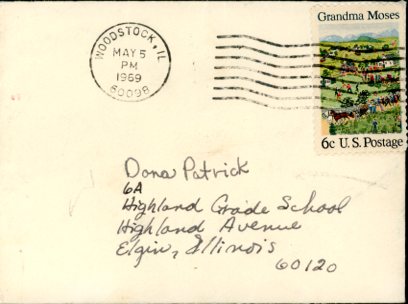 Grandma Moses
WOODSTOCK, IL
MAY 5
PM
1969
60098
6c U.S. Postage
Dona Patrick
6A
Highland Grade School
Highland Avenue
Elgin, Illinois
60120